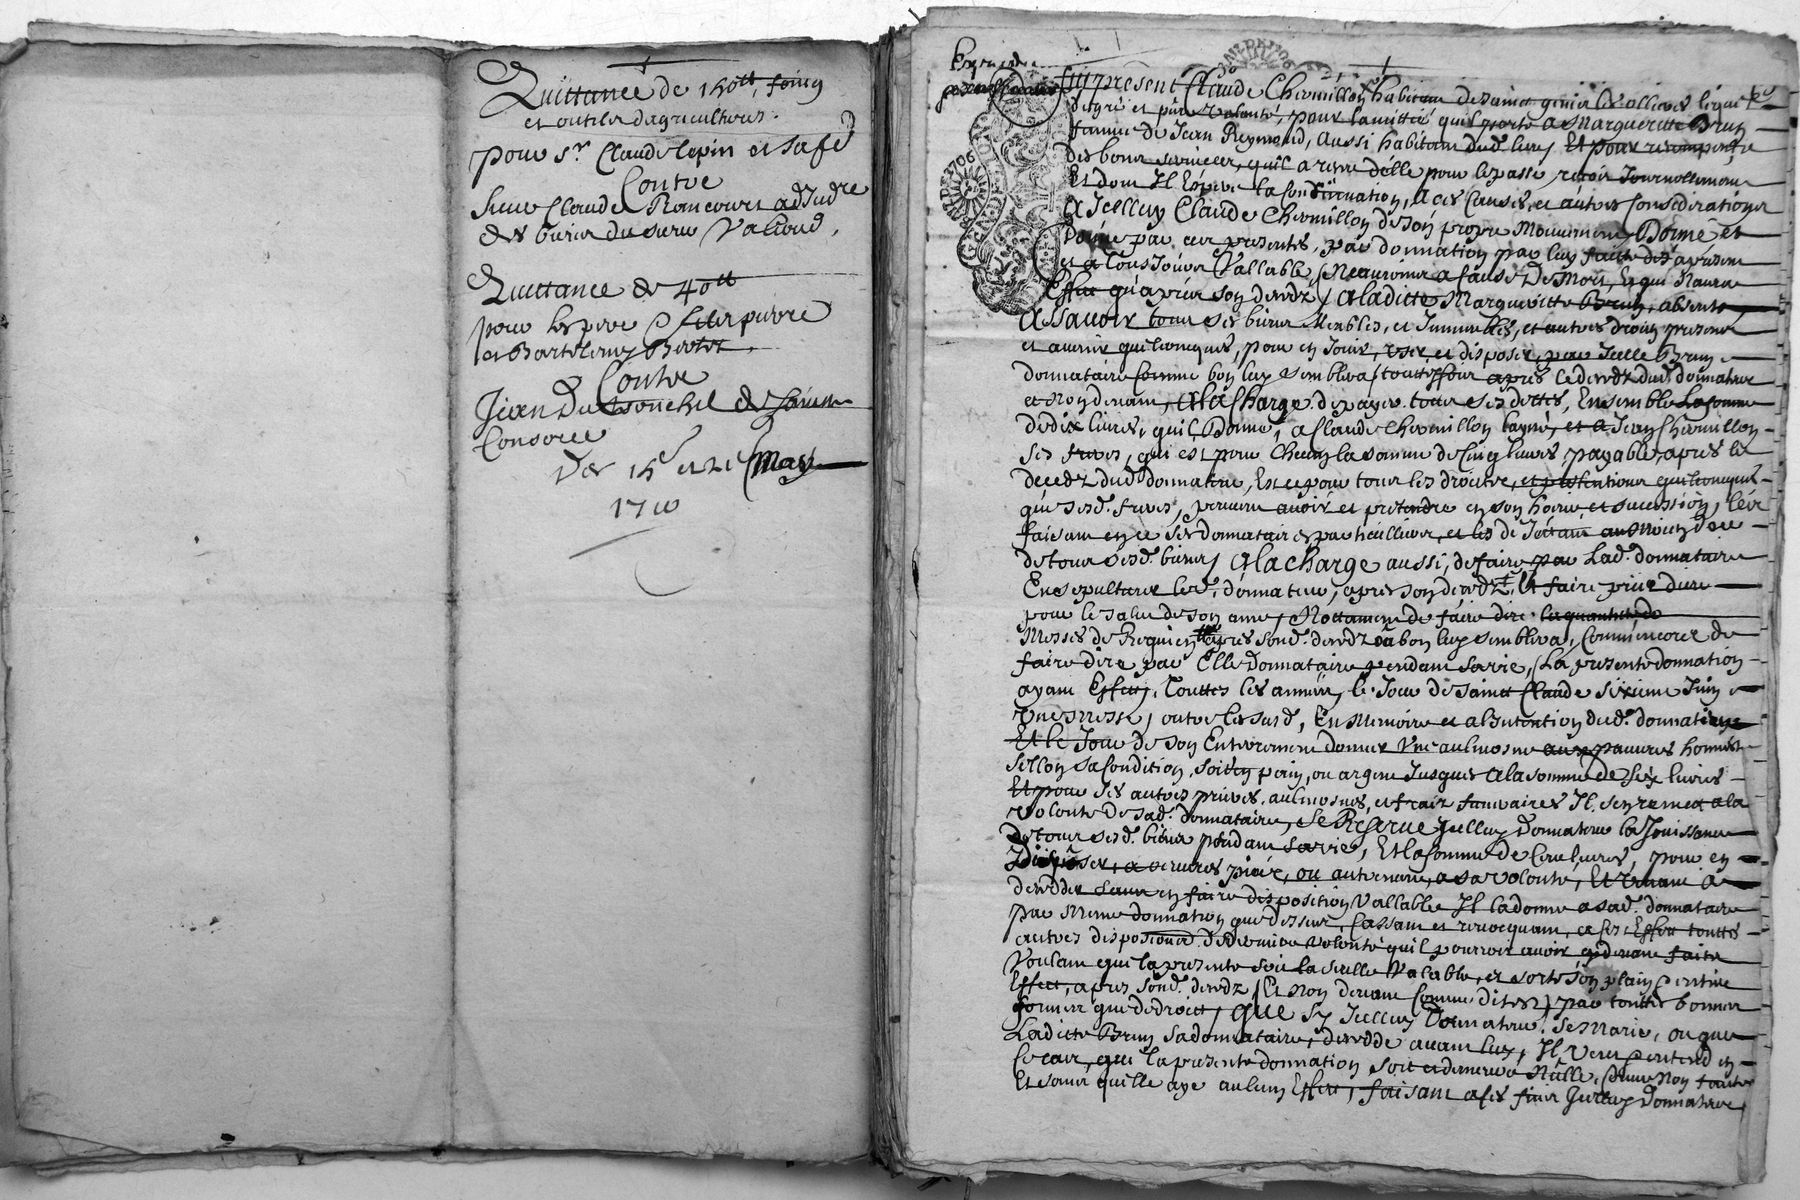 Quittance de 150tt, foing
et outilz dagriculture.
pour Sr Claude lepin et sa fe
Contre
Sieur Claude Rancourt adjudre
des biens du sieur Valioud,
Quittance de 40tt
pour les pere & filz pierre
et Bartelemy Berlot,
Contre
Jean du Tronchel de Sainte
Consorce
Des 15e et 21e May
1710
GEN DE 1706
fut present Claude Chermillon habitant de saint genis les ollieres lequel
degré et pure volonté, pour lamitié quil porte a Margueritte Brun
femme de Jean Reymond, aussi habitant dud. lieu, Et pour recompense
des bons services, quil a receu délle pour le passé, reçoit Journellement
Et dont Il Espere la continuation, A ces causes, et autres considerations
A Icelluy Claude Chermillon de son propre mouvement Donné et
Donne par ces presentes, par donnation par luy faitte des a present
et a tousjours Vallable, Neanmoins a cause de Mort, & qui Naura
Effet quapres son decedz, A laditte Margueritte Brun, absente,
Assavoir tous ses biens Meubles, et Immeubles, et autres droits presens
et avenir quelconques, pour en Jouir, user et disposer, par Icelle Brun
donnataire comme bon luy semblera, touttesfois apres le decedz dud. donnateur
et Non devant, A la Charge de payer tous ses dettes, Ensemble La somme
de dix livres, quil Donne, a Claude Chermillon layné, et a Jean Chermillon
ses freres, qui est pour Chacun la somme de Cinq livres, payable, apres le
decedz dud. donnateur, Et ce pour tous les droits, et pretentions quelconques
que sesd. freres, peuvent avoir et pretendre en son hoirie et succession, les
faisant en ce ses donnataires particulliers, et les dejettant au moyen de ce
de tous sesd. biens, A la charge aussi, de faire par Lad. donnataire
Ensepulturer led. donnateur, apres son decedz, Et faire prier dieu
pour le salut de son ame, Nottamment de faire dire la quantité de
Messes de Requiem apres sond. decedz quà bon luy semblera, Comme encores de
faire dire par Elle donnataire pendant sa vie, La presente donnation
ayant Effet, Touttes les années, le Jour de Saint Claude sixieme Juin
Une messe, outre les susd., En Memoire et a lintention dud. donnateur
Et le Jour de son Enterrement donner Une aulmosne aux pauvres honneste
sellon sa condition, soit en pain, ou argent Jusques a la somme de six livres
Et pour ses autres prieres, aulmosnes, et fraix funeraires Il sen remet a la
Volonté de sad. donnataire, Se Reserve Icelluy Donnateur la Jouissance
de tous sesd. biens pendant sa vie, Et la somme de Cent livres, pour en
Disposer, a oeuvres pieux, ou autrement, a sa volonté, Et Venant à
decedder sans en faire disposition Vallable Il la donne a sad. donnataire
par meme donnation que dessus, Cassant et revocquant, a ses Effet touttes
autres dispositions de derniere volonté quil pourroit avoir cy devant faites
Voulant que la presente soit la seulle Valable, et sorte son plain & entier
Effect, apres sond. decedz (Et Non devant comme dit est) par touttes bonnes
formes que de droict, Que sy Icelluy Donnateur, se Marie, ou que
Laditte Brun sa donnataire, decedde avant luy, Il Veut & entend en
ce cas, que la presente donnation soit et demeure Nulle, comme Non faitte
Et sans quelle aye aulcun Effect, faisant a ses fins Icelluy Donnateur